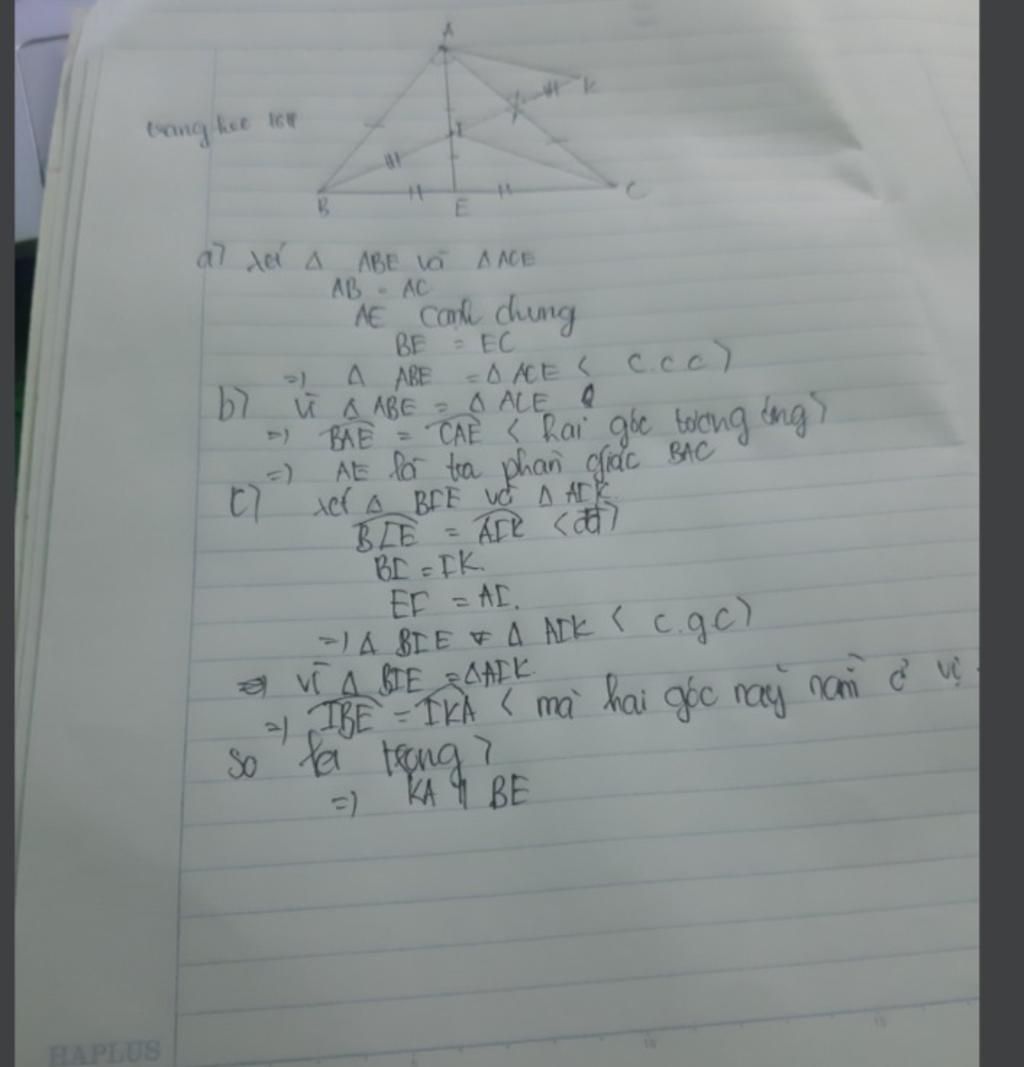 A
K
I
B
E
C
a) xét Δ ABE và Δ ACE
AB = AC
AE cạnh chung
BE = EC
=) Δ ABE = Δ ACE < c.c.c)
b) Vì Δ ABE = Δ ACE
=) BAE = CAE < hai góc tương ứng)
=) AE là tia phân giác BAC
c) xét Δ BIE và Δ AIK
BIE = AIK <đđ)
BI = IK.
EI = AI.
=) Δ BIE = Δ AIK < c.gc)
vì Δ BIE = ΔAIK
=) IBE = IKA < mà hai góc này nằm ở vị
so le trong)
=) KA // BE
HAPLUS
5
10
15